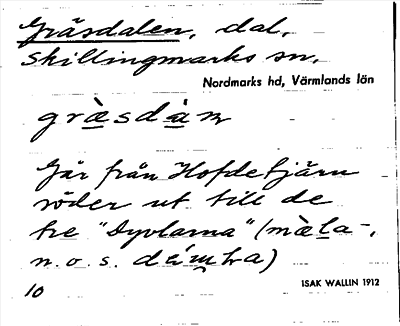 Gräsdalen, dal,
Skillingmarks sn,
Nordmarks hd, Värmlands län
grä̀sdàn
Går från Hofdetjärn
söder ut till de
tre "Dyvlarna" (mäla-,
n. o. s.
10
ISAK WALLIN 1912